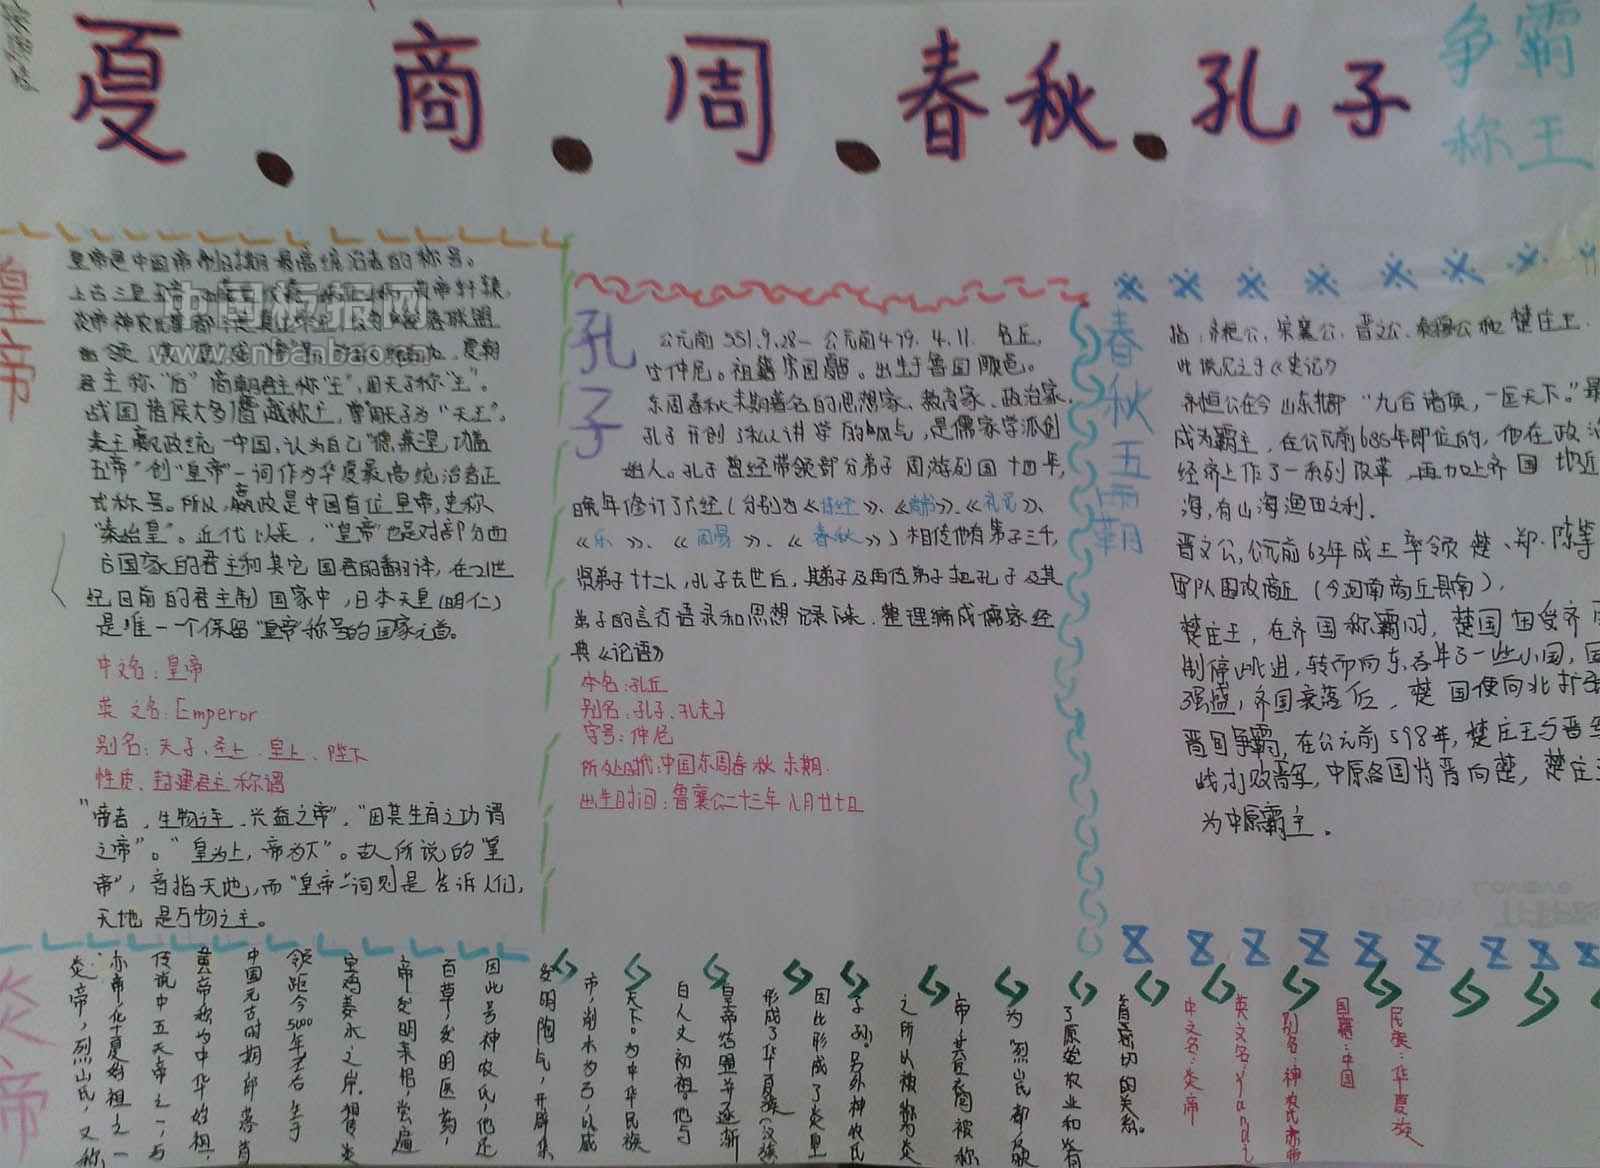 夏.商.周.春秋.孔子
争霸
称王
皇帝
皇帝是中国帝制时期最高统治者的称号。
君主称"后"商朝君主称"王",周天子称"王"。
战国诸侯大多僭越称王,尊周天子为"天王"。
秦王嬴政统一中国,认为自己"德兼三皇,功盖
五帝"创"皇帝"一词作为华夏最高统治者正
式称号。所以,嬴政是中国首位皇帝,史称
"秦始皇"。近代以来,"皇帝"也是对部分西
方国家的君主和其它国君的翻译,在21世
纪目前的君主制国家中,日本天皇(明仁)
是唯一个保留"皇帝"称号的国家元首。
中文名:皇帝
英文名:Emperor
别名:天子、圣上、皇上、陛下
性质:封建君主称谓
"帝者,生物之主,兴益之帝","因其生育之功谓
之帝"。"皇为上,帝为下"。故人所说的"皇
帝",音指天地,而"皇帝"一词则是告诉人们,
天地是万物之主。
孔子
公元前551.9.28-公元前479.4.11.名丘,
字仲尼。祖籍宋国 出生于鲁国陬邑。
东周春秋末期著名的思想家、教育家、政治家,
孔子开创了私人讲学的风气,是儒家学派创
始人。孔子曾经带领部分弟子周游列国十四年,
晚年修订了六经(分别为《诗经》、《尚书》、《礼记》、
《乐》、《周易》、《春秋》)相传他有弟子三千,
贤弟子七十二人,孔子去世后,其弟子及再传弟子把孔子及其
弟子的言行语录和思想记录下来,整理编成儒家经
典《论语》
本名:孔丘
别名:孔子、孔夫子
字号:仲尼
所处时代:中国东周春秋末期.
出生时间:鲁襄公二十三年八月廿七日
春秋五霸
指:齐桓公,宋襄公,晋文公,秦穆公和楚庄王.
此说见之于《史记》
齐桓公在今山东北部"九合诸侯,一匡天下。"最
成为霸主,在公元前685年即位的,他在政治
经济上作了一系列改革,再加上齐国地近
海,有山海渔田之利.
晋文公,公元前63年成王率领楚、郑、陈等
军队围攻商丘(今河南商丘县南),
楚庄王,在齐国称霸时,楚国因受齐
制停止北进,转而向东,吞并了一些小国,国
强盛,齐国衰落后,楚国便向北扩张
晋国争霸,在公元前598年,楚庄王与晋军
战,打败晋军,中原各国背晋向楚,楚庄王
为中原霸主。
炎帝
炎帝,烈山氏,又称
赤帝,华夏始祖之一
传说中五天帝之一,与
黄帝称为中华始祖,
中国元古时期部落首
领,距今5000年左右生于
宝鸡姜水之岸.
帝发明耒耜,尝遍
百草,发明医药,
因此号神农氏,他还
发明陶气,开辟集
市,削木为弓,以威
天下。为中华民族
日人文初祖。他与
皇帝结盟并逐渐
形成了华夏族(汉族
因此形成了炎皇
子孙。另外神农氏
之所以被称为炎
帝,
为"烈山氏"都反映
了原始农业和火有
首密切的关系。
中文名:炎帝
英文名:Yandi
别名:神农氏赤帝
国籍:中国
民族:华夏族
中国板报网
www.cnbanbao